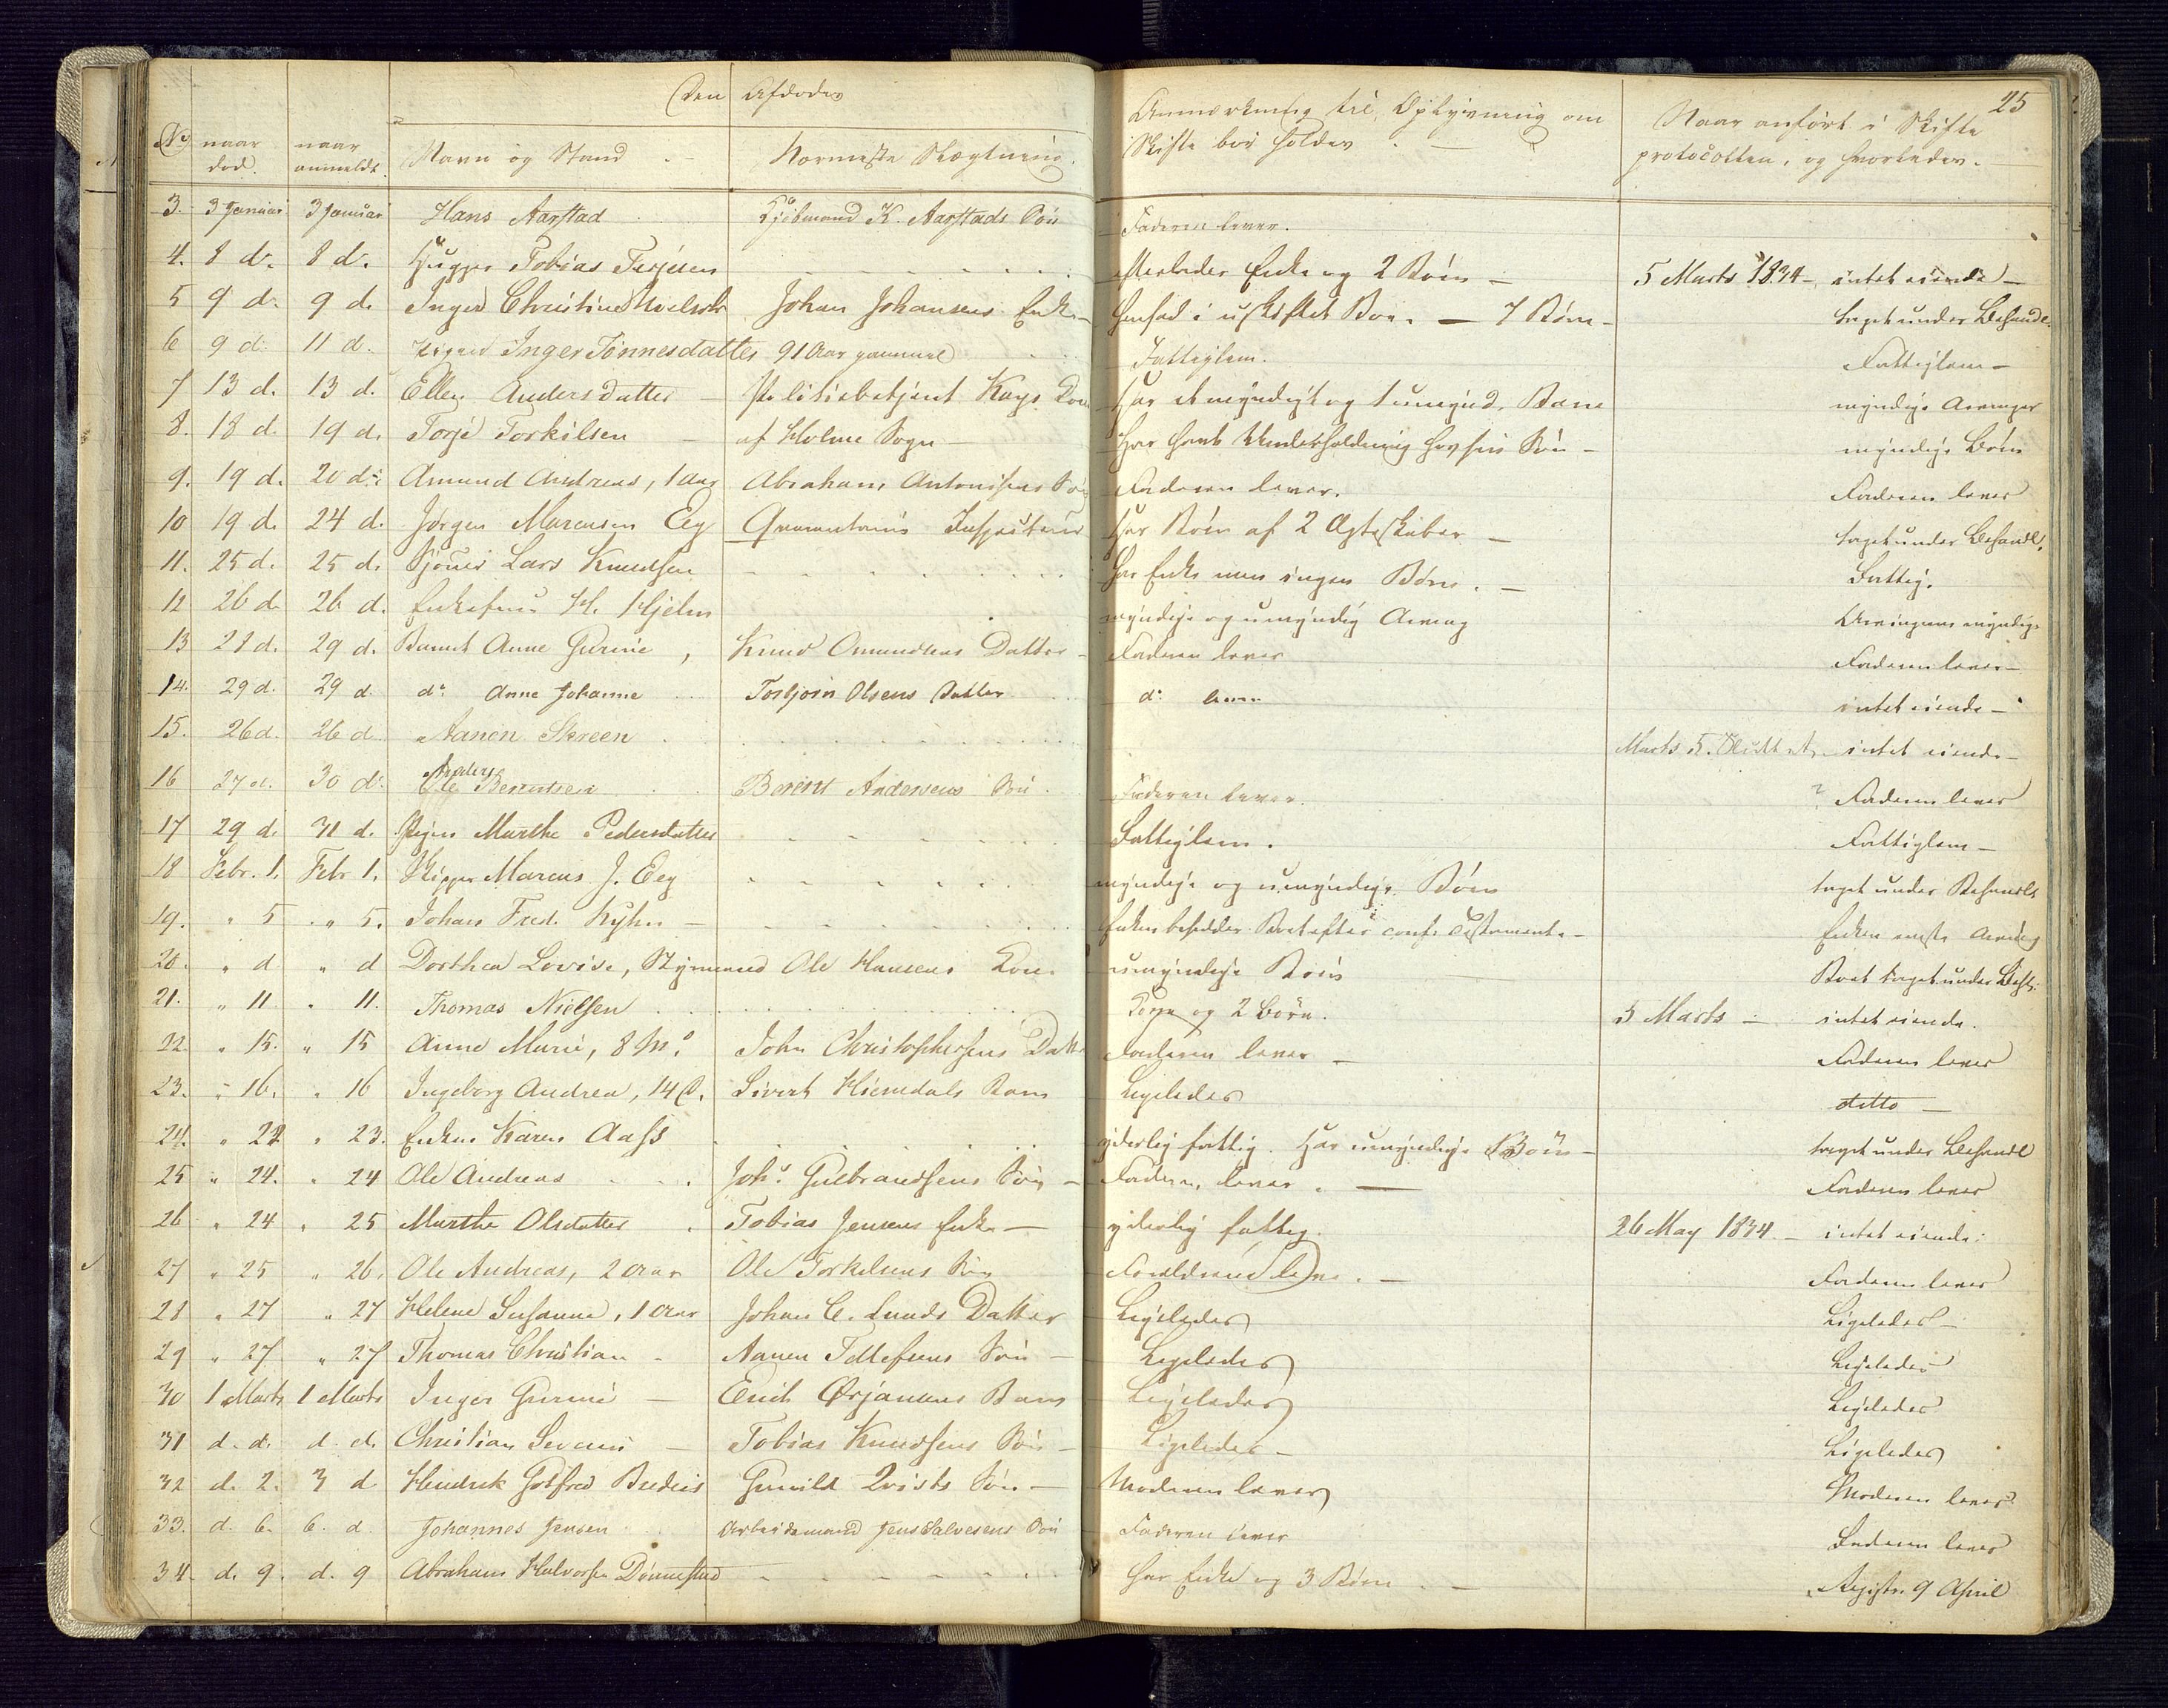 25
Den Afdødes
No naar død. naar anmeldt. Navn og Stand Nærmeste Slægtning. Anmærkning til Oplysning om Skifte bør holdes. Naar anført i Skifte protocollen, og hvorledes.
3. 3 Januar 3 Januar Hans Aarstad Kjøbmand K. Aarstads Søn Faderen lever.
4. 8 d. 8 d. Tobias Terjesen efterlader Enke og 2 Børn 5 Marts 1834 intet eiende
5 9 d. 9 d. Inger Christine Johan Johansens Enke hensad i uskiftet Boe. 7 Børn taget under Behandl.
6 9 d. 11 d. Inger Tønnesdatter 91 Aar gammel Fattiglem. Fattiglem
7 13 d. 13 d. Ellen Andersdatter Politiebetjent Kays Kone Har et myndigt og 1 umynd. Barn myndige Arvinger
8. 18 d. 19 d. Torje Torkilsen af Holme Sogn Har havt Underholdning hos sin Søn myndige Børn
9. 19 d. 20 d. Amund Andreas, 1 aar Abraham Antonisens Søn Faderen lever. Faderen lever
10 19 d. 24 d. Jørgen Marcusen Eeg Qvarantains Inspecteur Har Børn af 2 Ægteskaber taget under Behandl.
11. 25 d. 25 d. Lars Knudsen Har Enke men ingen Børn. Fattig.
12 26 d. 26 d. Enkefrue H. Hjelm myndige og umyndig Arving Arvingerne myndige
13 28 d. 29 d. Barnet Anne Gurine, Knud Omundsens Datter Faderen lever Faderen lever
14. 29 d. 29 d do Anne Johanne Torbjørn Olsens Datter do lever intet eiende
15. 26 d. 26 d. Aanen Skreen Marts 5. intet eiende
16 27 d. 30 d. Anders Berentsen Berent Andersens Søn Faderen lever. ? Faderen lever
17 29 d. 31 d. Marthe Pedersdatter Fattiglem. Fattiglem
18 Febr. 1. Febr 1. Skipper Marcus J. Eeg myndige og umyndige Børn taget under Behandl
19. " 5 " 5. Johan Fred. Kyhn Enken beholder Boet efter conf. Testamente Enken eneste Arving
20. " d " d Dorthea Lovise, Styrmand Ole Hansens Kone umyndige Børn Boet taget under Behl.
21. " 11 " 11. Thomas Nielsen Kone og 2 Børn. 5 Marts intet eiende.
22. " 15. " 15 Anne Marie, 8 Md. John Christophersens Datter Faderen lever Faderen lever
23. " 16. " 16 Ingeborg Andrea, 14 D. Sivert Hiemdals Barn Ligeledes ditto
24. " 22 " 23. Enken Karen Aass yderlig fattig. Har umyndige Børn taget under Behandl
25 " 24. " 24 Ole Andreas Johs Gulbrandsens Søn Faderen lever. Faderen lever
26 " 24 " 25 Marthe Olsdatter Tobias Jensens Enke yderlig fattig. 26 May 1834 intet eiende.
27 " 25 " 26. Ole Andreas, 2 Aar Ole Torkelsens Søn Forældrene leve. Faderen lever
28 " 27 " 27 Helene Susanne, 1 Aar Johan C. Lunds Datter Ligeledes Ligeledes
29 " 27 " 27 Thomas Christian Aanen Tellefsens Søn Ligeledes Ligeledes
30 1 Marts 1 Marts Inger Gurine Erich Ørjansens Barn Ligeledes Ligeledes
31 d. d. d. d. Christian Severin Tobias Knudsens Søn Ligeledes Ligeledes
32 d. 2. 3 d Hendrik Gotfred Gunild Qvists Søn Moderen lever Moderen lever
33. d. 6. 6. d Johannes Jensen Arbeidsmand Jens Salvesens Søn Faderen lever Faderen lever
34 d. 9. d. 9 Abraham Halvorsen Dønnestad har Enke og 3 Børn Registr. 9 April